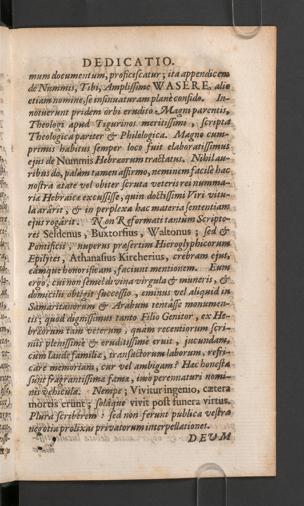 DEDICATIO.
mum documentum, proficiscatur; ita appendicem
de Nummis, Tibi, Amplissime WASERE, alio
etiam nomine, se insinuaturam planè confido. In-
notuerunt pridem orbi erudito Magni parentis,
Theologi apud Tigurinos meritissimi, scripta
Theologica pariter & Philologica. Magno cum-
primis habitus semper loco fuit elaboratissimus
ejus de Nummis Hebræorum tractatus. Nihil au-
ribus do, palàm tamen affirmo, neminem facilè hac
nostra ætate vel obiter scruta veteris rei numma-
riæ Hebraicæ excussisse, quin doctissimi Viri vitu-
la ararit, & in perplexa hac materia sententiam
ejus rogârit. Non Reformati tantùm Scripto-
res Seldenus, Buxtorfius, Waltonus; sed &
Pontificii, nuperus præsertim Hieroglyphicorum
Athanasius Kircherius, crebram ejus,
eámque honorificam, faciunt mentionem. Eum
ergo, cui non semel divina virgula & muneris, &
domicilii obtigit successio, eminus vel aliquid in
Samaritanorum & Arabum tentasse monumen-
tis; quod dignissimus tanto Filio Genitor, ex He-
bræorum tam veterum, quàm recentiorum scri-
niis plenissimè & eruditissimè eruit, jucundam,
cum laude familiæ, transactorum laborum, refri-
care memoriam, cur vel ambigam? Hac honesta
sunt fragrantissima fama, imò perennaturi nomi-
nis vehicula. Nempe; Vivitur ingenio, cætera
mortis erunt; soláque vivit post funera virtus.
Plura scriberem: sed non ferunt publica vestra
negotia prolixas privatorum interpellationes.
DEUM